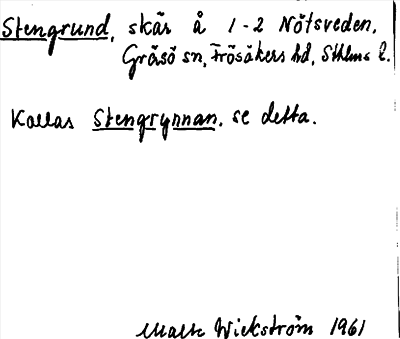 Stengrund, skär å 1-2 Nötsveden,
Gräsö sn, Frösåkers hd, Sthlms l.
Kallas Stengrynnan, se detta.
Wickström 1961